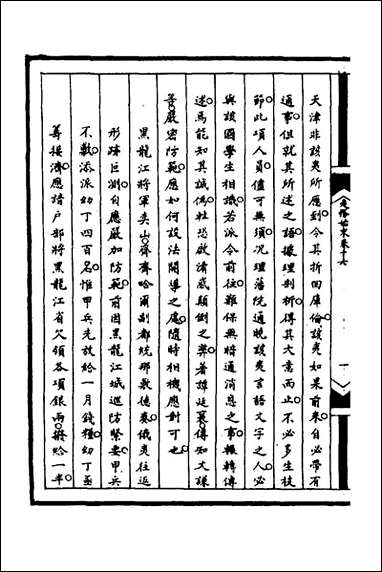 天津非該夷所應到令其折回庫倫該夷如果前來自必帶有
通事但就其所述之語據理剖析得其大意而止不必多生枝
節此項人員儘可無須况理藩院通曉該夷言語文字之人必
與該國學生相識若派令前往難保無暗通消息之事輾轉傳
述焉能知其誠偽杜恐啟清惑顛倒之弊著譚廷襄傳知文謙
等嚴密防範應如何設法開導之處隨時相機應對可也
黑龍江將軍奕山齊齊哈爾副都統那敷德奏俄夷往返
形蹤叵測自應嚴加防範前因黑龍江城巡防緊要甲兵
不敷添派幼丁四百名惟甲兵先放給一月錢糧幼丁亟
籌接濟應請户部將黑龍江省欠領各項銀兩撥給一半
夷務始末卷十六
一